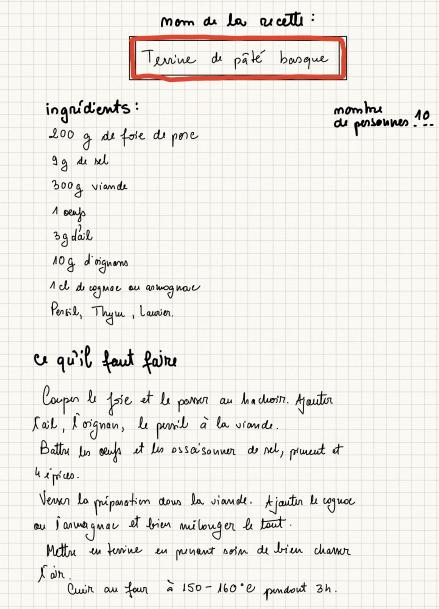 nom de la recette :
Terrine de pâté basque
ingrédients :
nombre
de personnes 10
200 g de foie de porc
9g de sel
300g viande
1 oeufs
3g d'ail
10g d'oignons
1 cl de cognac ou armagnac
Persil, Thym, Laurier.
ce qu'il faut faire
Couper le foie et le passer au hachoir. Ajouter
l'ail, l'oignan, le persil à la viande.
Battre les oeufs et les assaisonner de sel, piment et
4 épices.
Verser la préparation dans la viande. Ajouter le cognac
ou l'armagnac et bien mélanger le tout.
Mettre en terrine en prenant soin de bien chasser
l'air.
Cuir au four à 150-160°c pendant 3h.